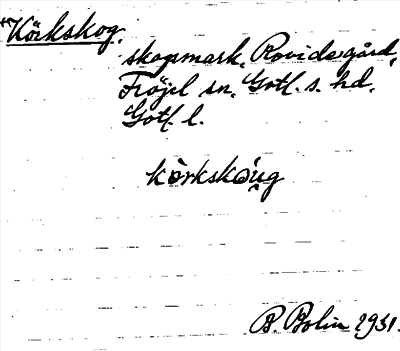 **Körkskog.
skogsmark, Rovidegård,
Fröjel sn, Gotl. s. hd,
Gotl. l.
kòrkskóu̯g
B. Bolin 1931.